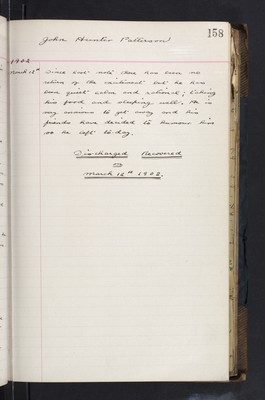 158
John Hunter Patterson
1902
March 12th Since last note there has been no
return of the excitement but he has
been quiet calm and rational; taking
his food and sleeping well. He is
very anxious to get away and his
friends have decided to remove him
so he left to-day.
Discharged Recovered
March 12th 1902.